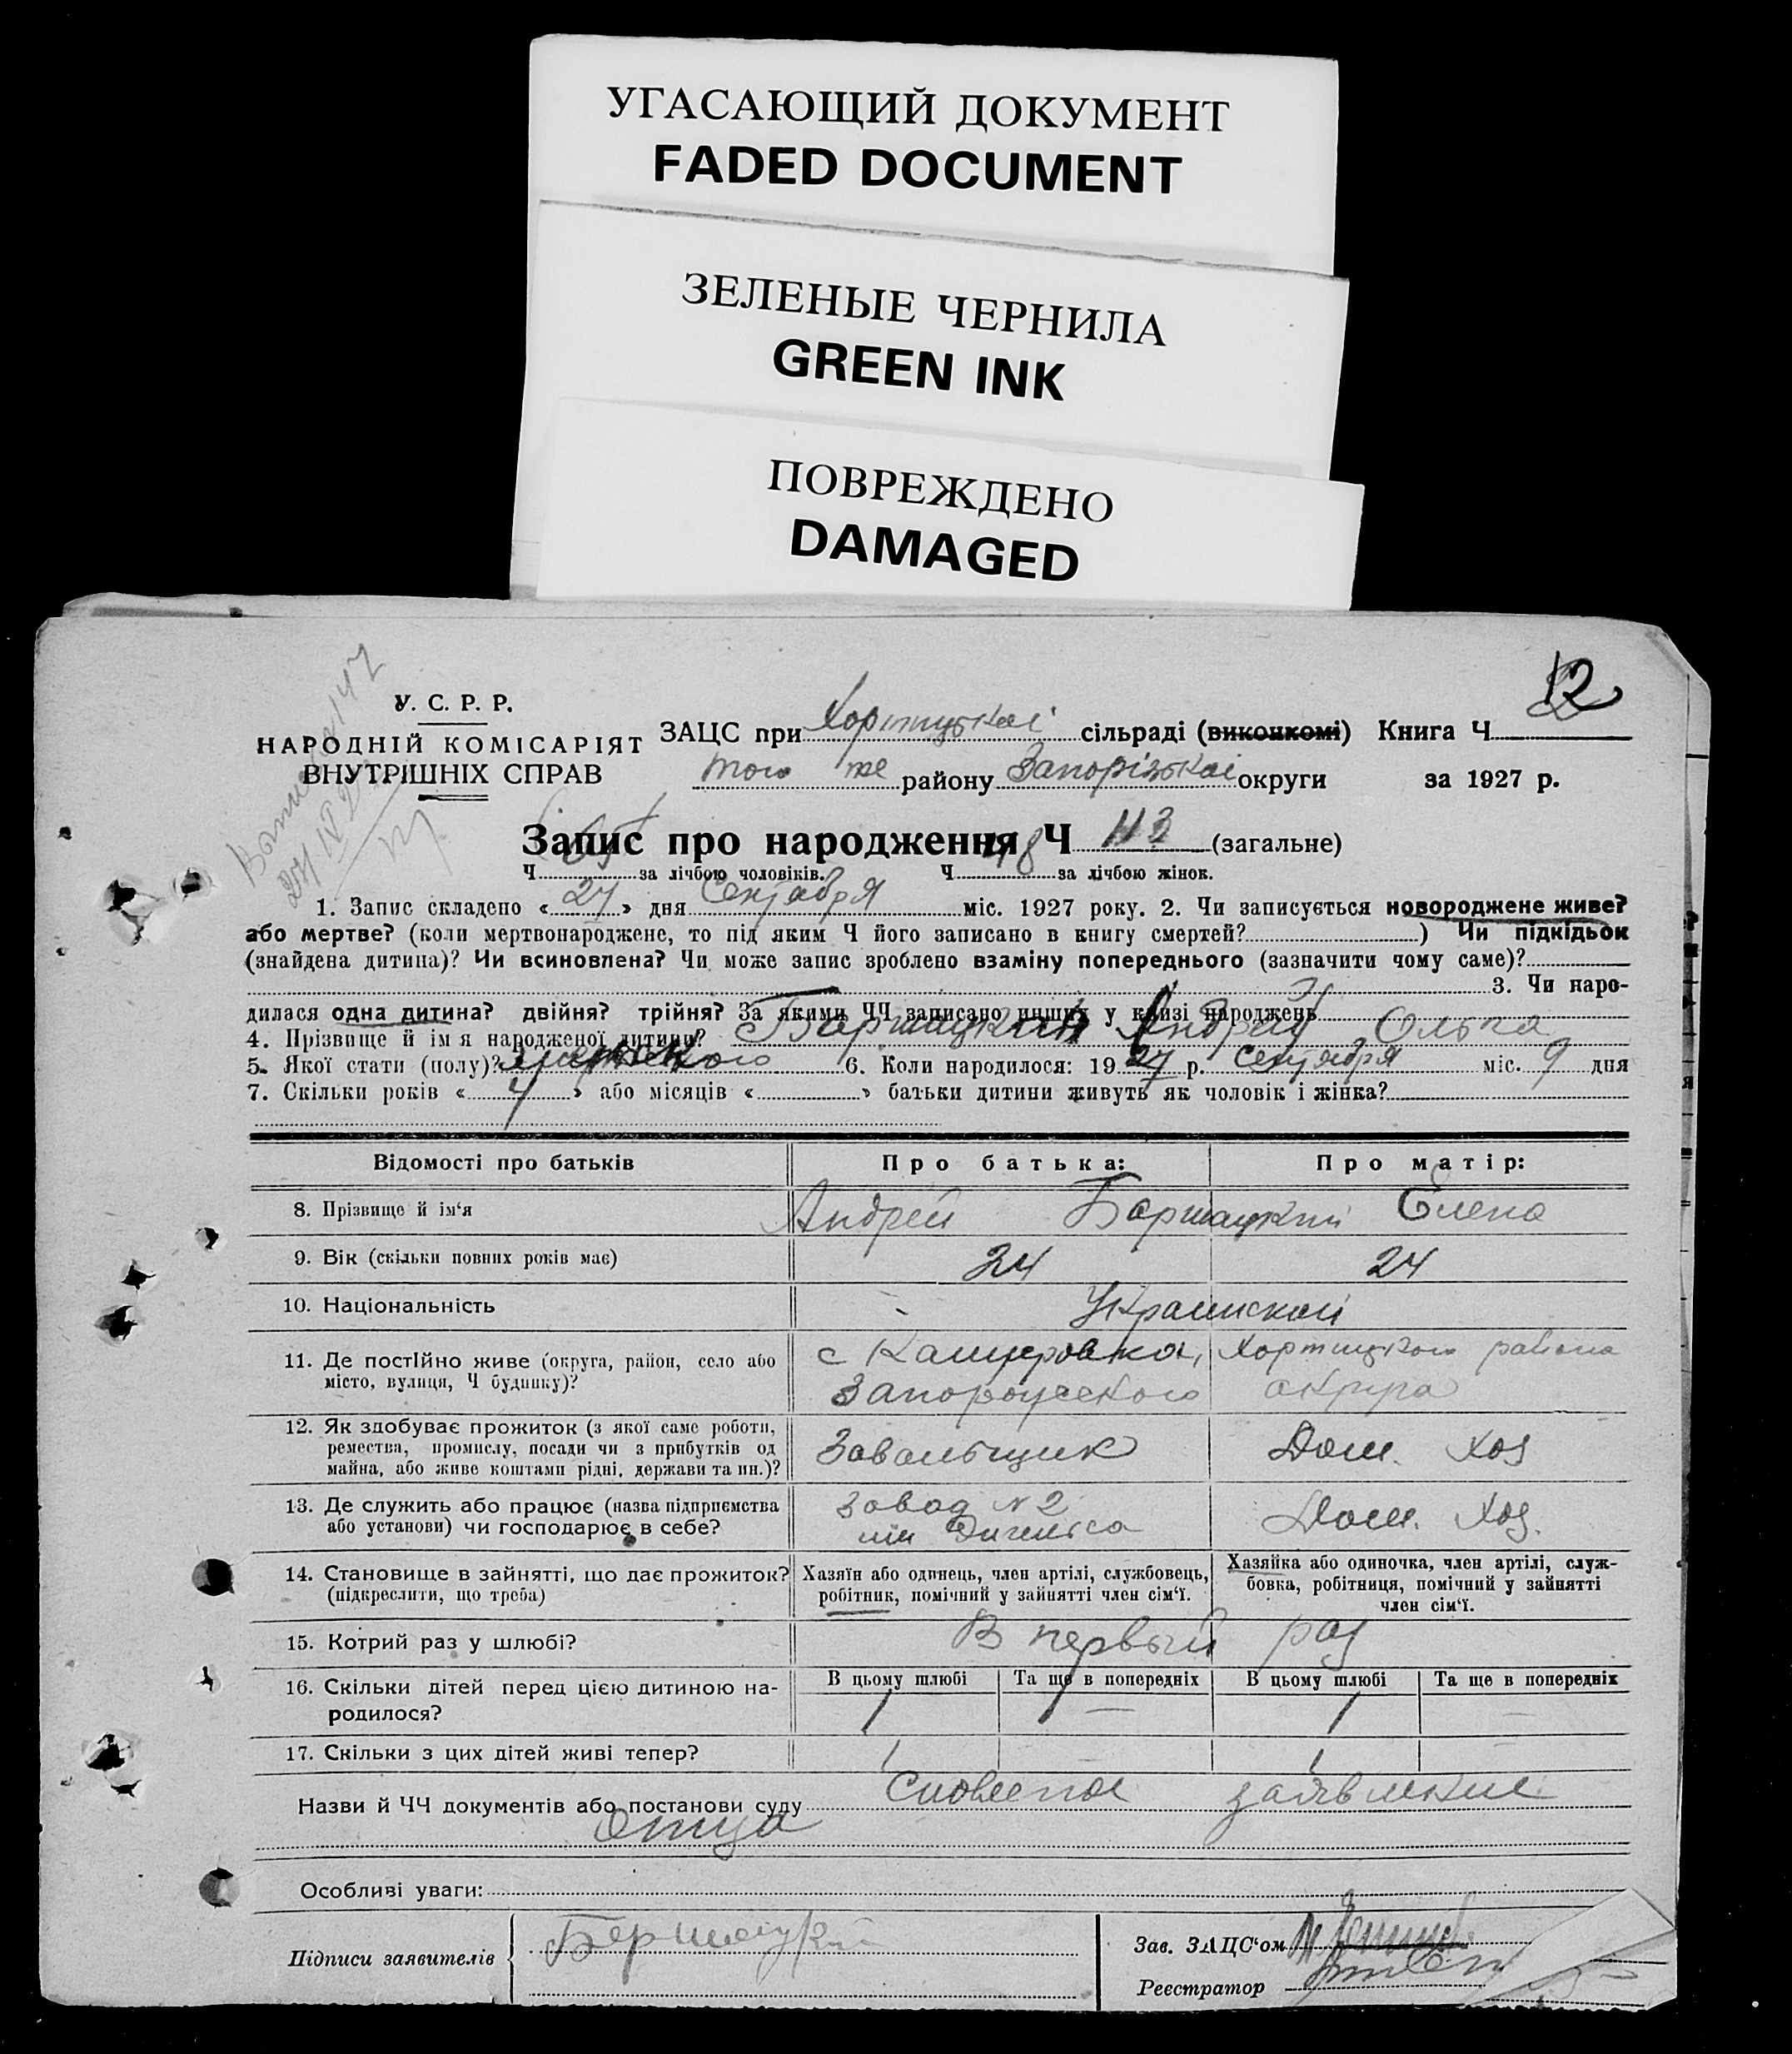 УГАСАЮЩИЙ ДОКУМЕНТ
FADED DOCUMENT
ЗЕЛЕНЫЕ ЧЕРНИЛА
GREEN INK
ПОВРЕЖДЕНО
DAMAGED
12
У. С. Р. Р.
НАРОДНІЙ КОМІСАРІЯТ
ВНУТРІШНІХ СПРАВ
ЗАЦС при Хортицькоі сільраді (виконкомі) Книга Ч
того же району Запорізькоі округи за 1927 р.
Запис про народження Ч 113 (загальне)
Ч 65 за лічбою чоловіків. Ч 48 за лічбою жінок.
1. Запис складено « 27 » дня Сентября міс. 1927 року. 2. Чи записується новороджене живе?
або мертве? (коли мертвонароджене, то під яким Ч його записано в книгу смертей? ) Чи підкідьок
(знайдена дитина)? Чи всиновлена? Чи може запис зроблено взаміну попереднього (зазначити чому саме)?
3. Чи наро-
дилася одна дитина? двійня? трійня? За якими ЧЧ записано инших у книзі народжень
4. Прізвище й ім я народженої дитини? Андрей Ольга
5. Якої стати (полу)? 6. Коли народилося: 1927 р. Сентября міс. 9 дня
7. Скільки років « 4 » або місяців « » батьки дитини живуть як чоловік і жінка?
Відомості про батьків Про батька: Про матір:
8. Прізвище й ім‘я Андрей Елена
9. Вік (скільки повних років має) 24 24
10. Національність Украинской
11. Де постІйно живе (округа, район, село або с Хортицкого района
місто, вулиця, Ч будинку)? Запорожского округа
12. Як здобуває прожиток (з якої саме роботи,
ремества, промислу, посади чи з прибутків од Завальщик Дом. Хоз
майна, або живе коштами рідні, держави та ин.)?
13. Де служить або працює (назва підприємства Завод N 2 Дом. Хоз.
або установи) чи господарює в себе? им Энгельса
14. Становище в зайнятті, що дає прожиток? Хазяїн або одинець, член артілі, службовець, Хазяйка або одиночка, член артілі, служ-
(підкреслити, що треба) робітник, помічний у зайнятті член сім‘ї. бовка, робітниця, помічний у зайнятті
член сім‘ї.
15. Котрий раз у шлюбі? В первый раз
16. Скільки дітей перед цією дитиною на- В цьому шлюбі Та ще в попередніх В цьому шлюбі Та ще в попередніх
родилося? 1 — 1 —
17. Скільки з цих дітей живі тепер? 1 — 1 —
Назви й ЧЧ документів або постанови суду заявление
отца
Особливі уваги:
Підписи заявителів
Зав. ЗАЦС‘ом
Реєстратор